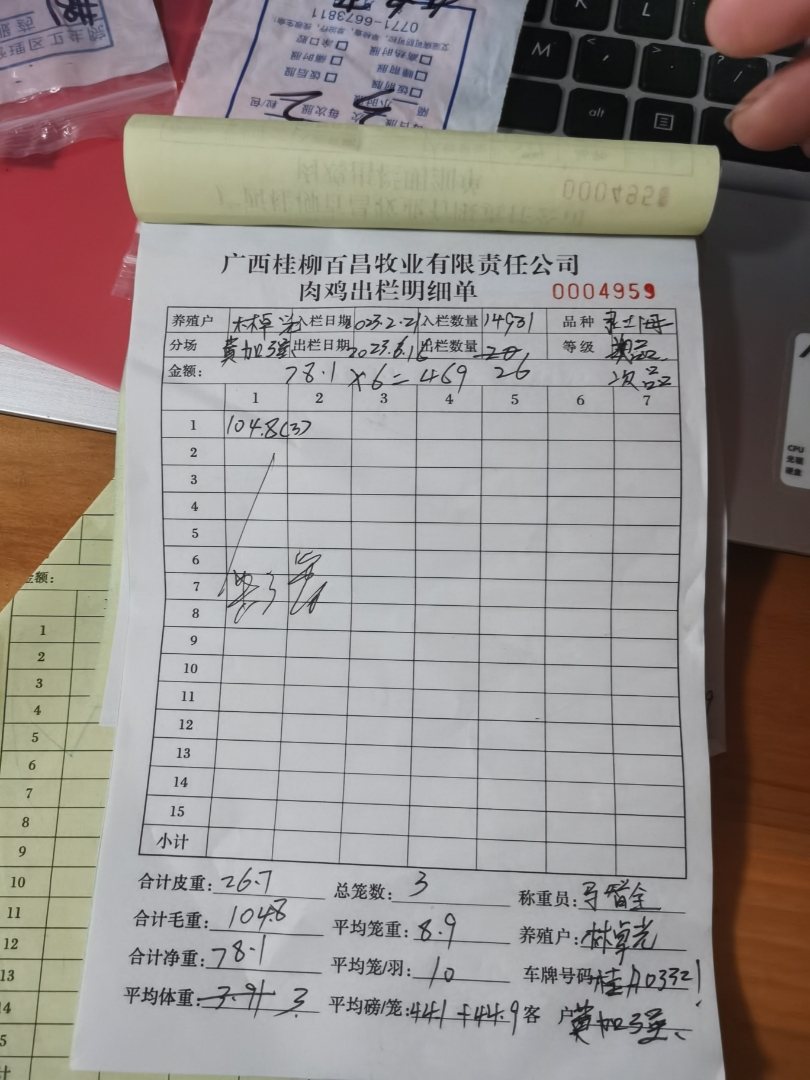 0771-6673811
0004958
广西桂柳百昌牧业有限责任公司
肉鸡出栏明细单 0004959
养殖户 林卓光 入栏日期 2023.2.21 入栏数量 14931 品种
分场 黄加强 出栏日期 出栏数量 26 等级 次品
金额: 78.1×6=469
1 2 3 4 5 6 7
1 104.8(3)
2
3
4
5
6
7
8
9
10
11
12
13
14
15
小计
合计皮重: 26.7 总笼数: 3 称重员:
合计毛重: 104.8 平均笼重: 8.9 养殖户: 林卓光
合计净重: 78.1 平均笼/羽: 10 车牌号码
平均体重: 3 平均磅/笼: 44.1+44.9 客户 黄加强
金额:
1
2
3
4
5
6
7
8
9
10
11
12
13
14
15
K
L
M
<
>
?
/
alt